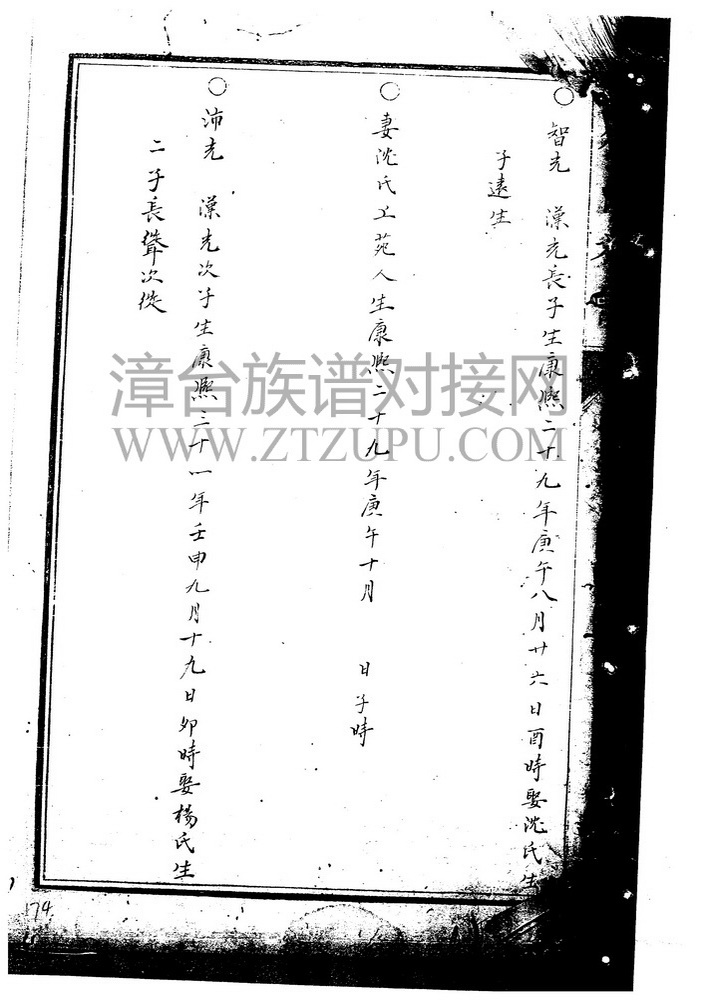 ○智先 漢先長子生康熙二十九年庚午八月廿六日酉時娶沈氏生
子遠生
○妻沈氏上苑人生康熙二十九年庚午十月 日子時
○沛先 漢先次子生康熙三十一年壬申九月十九日卯時娶楊氏生
二子長聳次從
漳台族谱对接网
WWW.ZTZUPU.COM
174